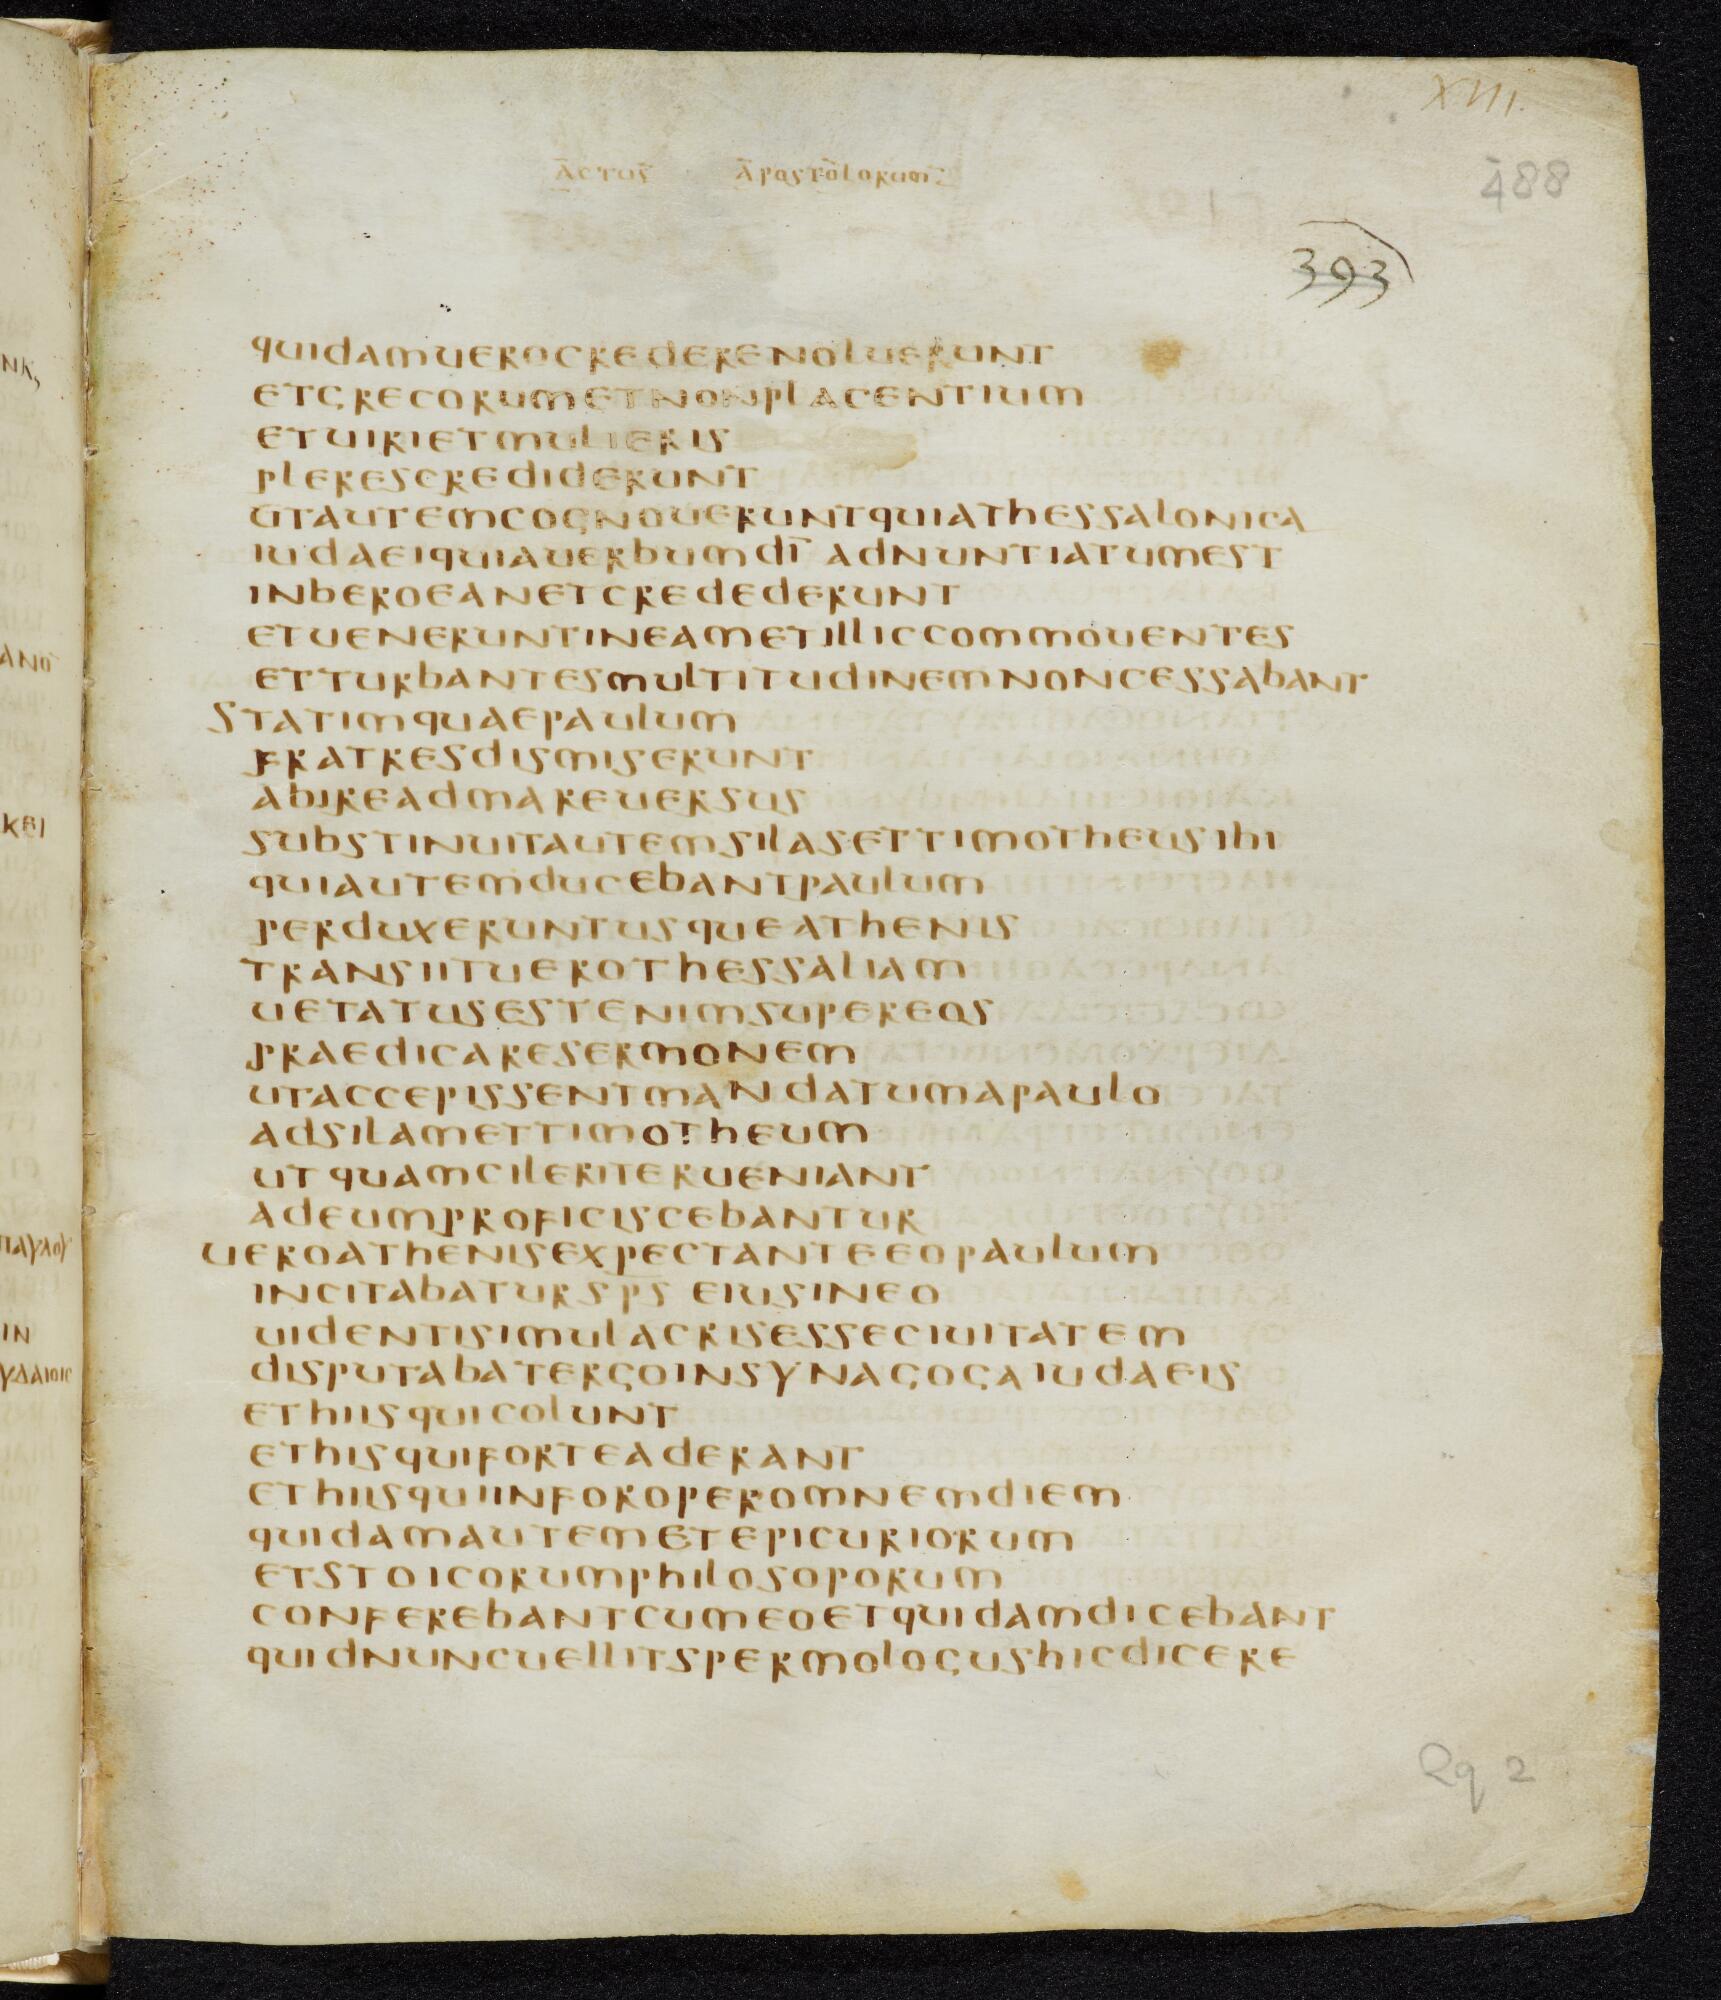 XIII.
ACTUS APOSTOLORUM
488
393
quidamuerocrederenoluerunt
etgrecorumetnonplacentium
etuirietmulieris
plerescrediderunt
utautemcognoueruntquiathessalonica
iudaeiquiauerbumdī adnuntiatumest
inberoeanetcredederunt
etueneruntineametilliccommouentes
etturbantesmultitudinemnoncessabant
statimquaepaulum
fratresdismiserunt
abireadmareuersus
substinuitautemsilasettimotheusibi
quiautemducebantpaulum
perduxeruntusqueathenis
transiituerothessaliam
uetatusestenimsupereos
praedicaresermonem
utaccepissentmandatumapaulo
adsilamettimotheum
utquamcileriterueniant
adeumproficiscebantur
ueroathenisexpectanteeopaulum
incitabatursps eiusineo
uidentisimulacrisesseciuitatem
disputabatergoinsynagogaiudaeis
ethiisquicolunt
ethisquiforteaderant
ethiisquiinforoperomnemdiem
quidamautemetepicuriorum
etstoicorumphilosoporum
conferebantcumeoetquidamdicebant
quidnuncuellitspermologushicdicere
Qq 2